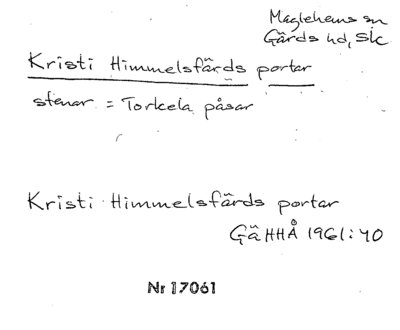 Maglehems sn
Gärds hd, Skc
Kristi Himmelsfärds portar
stenar = Torkela påsar
Kristi Himmelsfärds portar
GäHHÅ 1961:40
Nr 17061